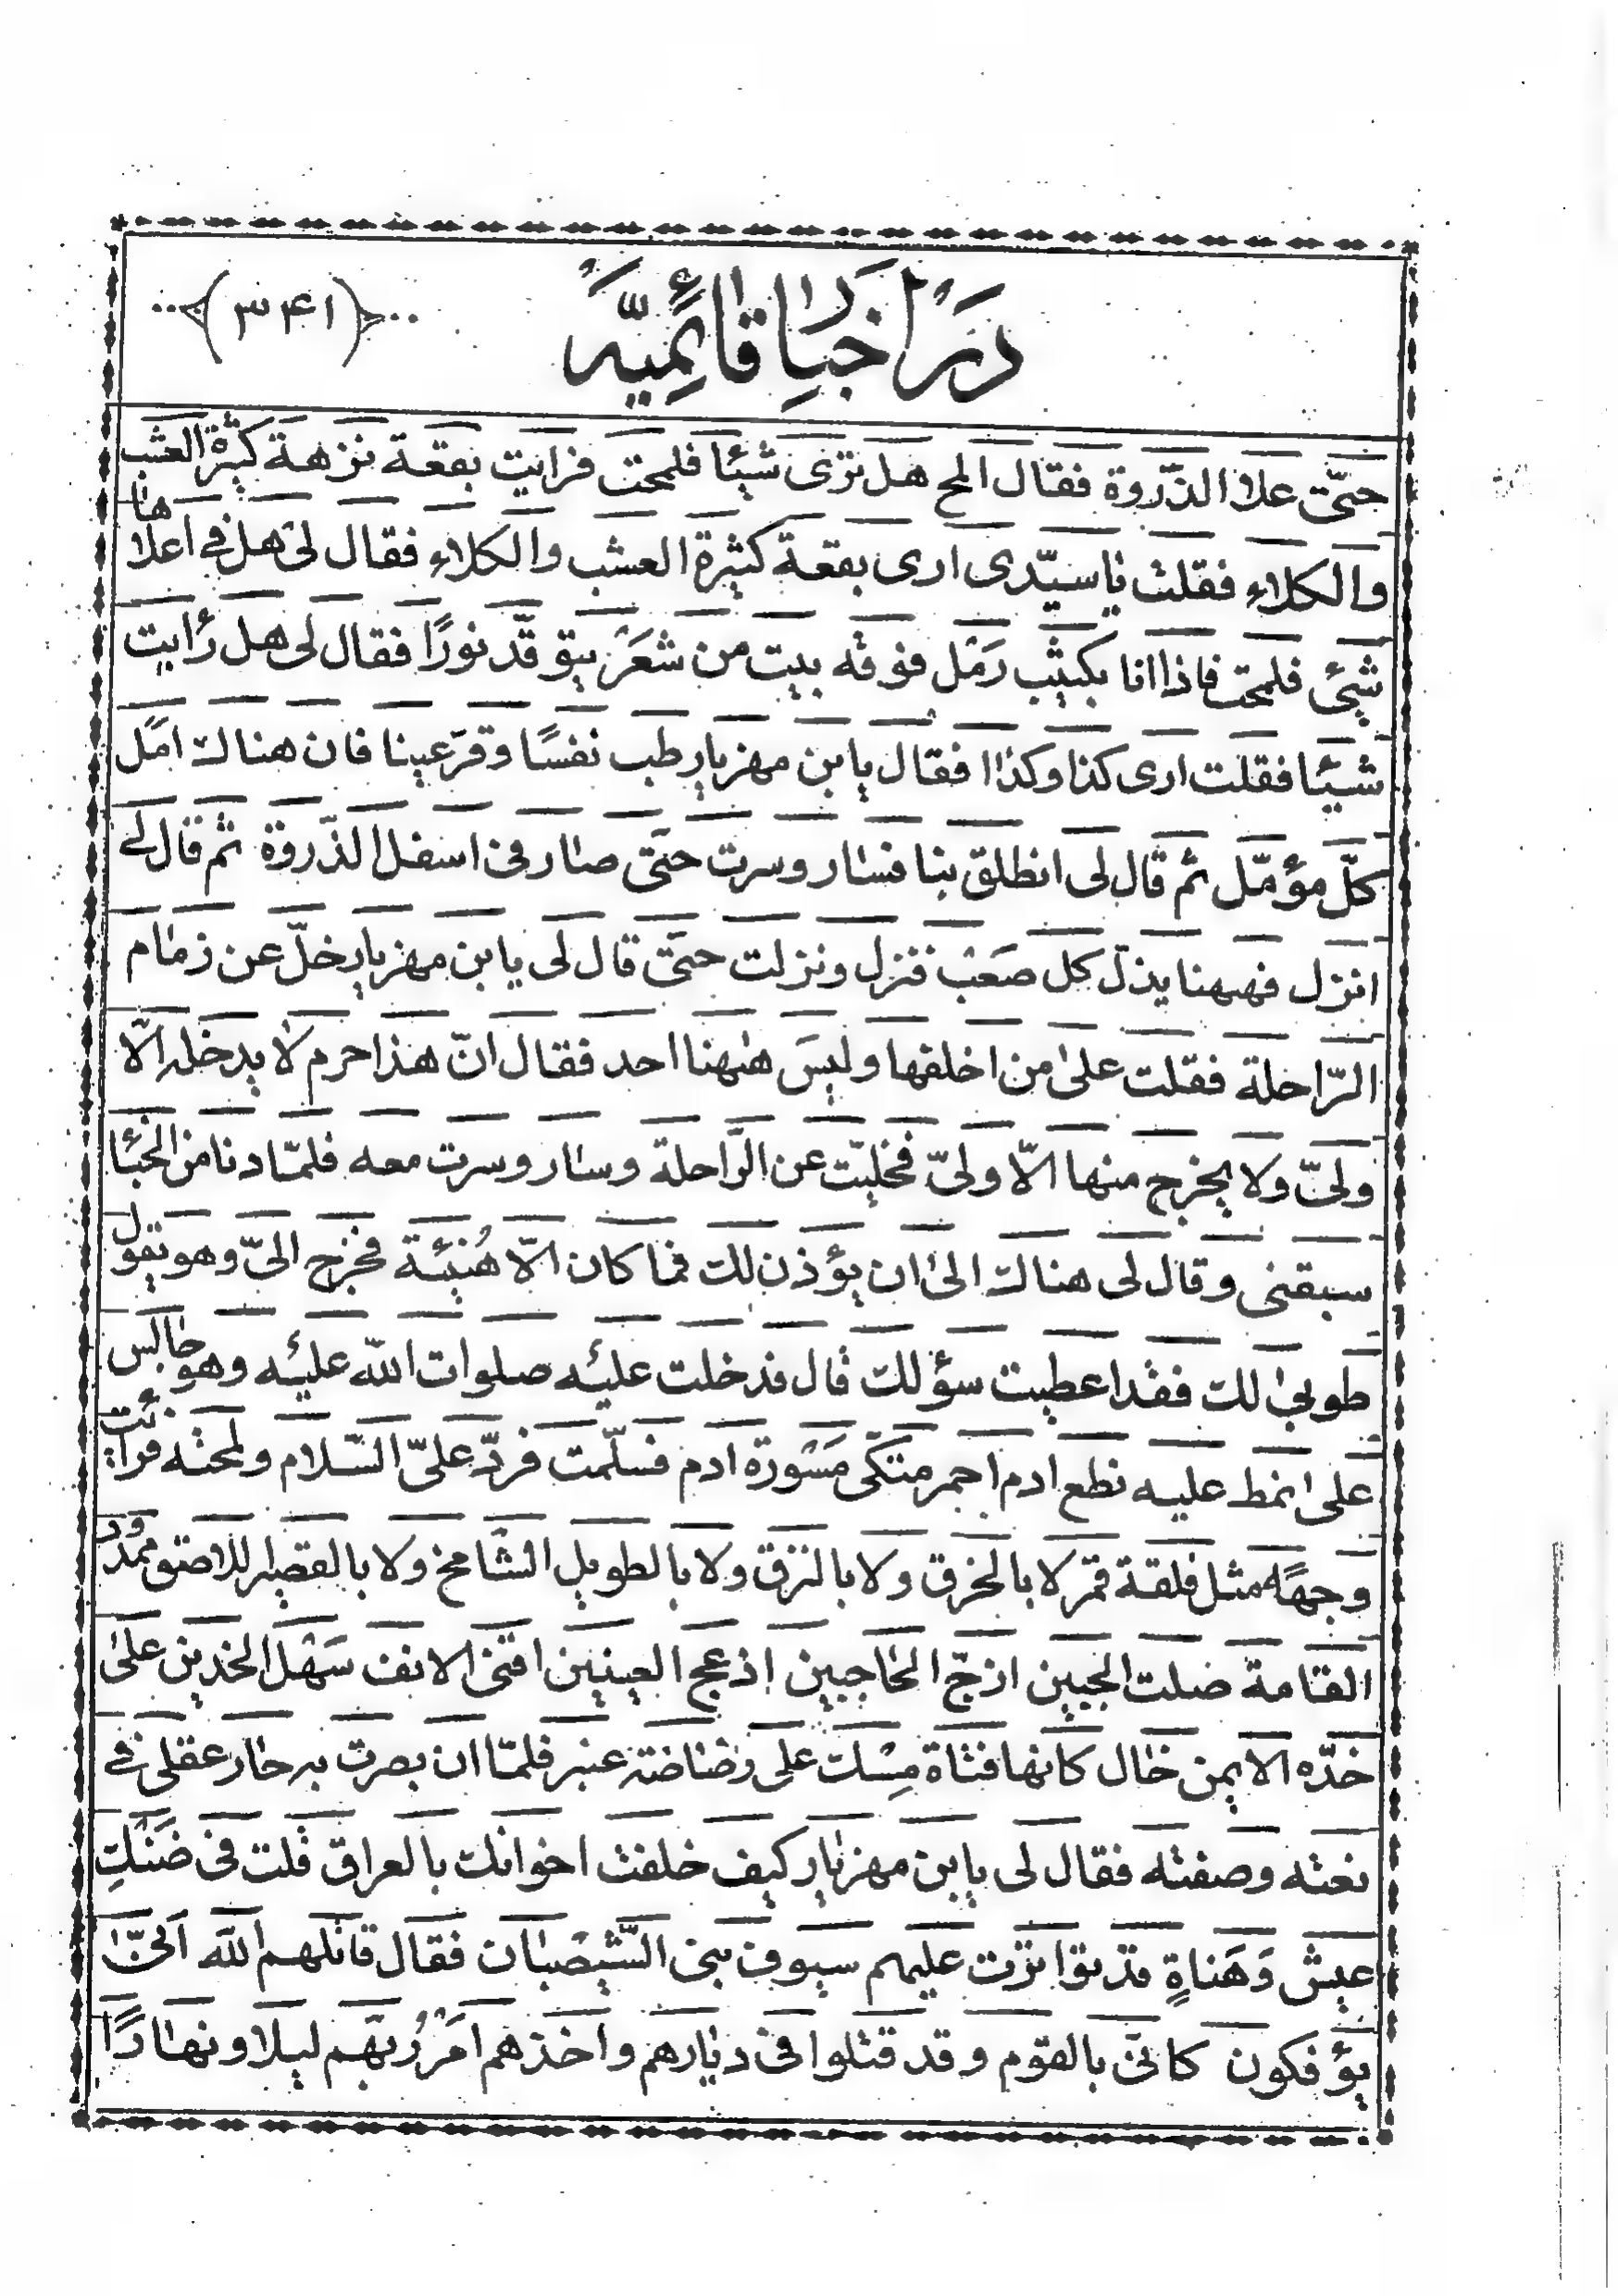 در اخبار قائمیه
﴿۳۴۱﴾
حتّى علا الذّروة فقال المح هل ترى شيئا فلمحت فرايت بقعة نزهة كثيرة العشب
والكلاء فقلت يا سيّدى ارى بقعة كثيرة العشب والكلاء فقال لى هل فى اعلاها
شيئ فلمحت فاذا انا بكثيب رَمْل فوقه بيت من شعَر يتوقّد نورًا فقال لى هل رأيت
شيئا فقلت ارى كذا وكذا فقال يابن مهزيار طب نفسًا وقرّ عينا فان هناك امَل
كلّ مؤمّل ثم قال لى انطلق بنا فسار وسرت حتّى صار فى اسفل الذّروة ثم قال لى
انزل فههنا يذلّ كل صَعْب فنزل ونزلت حتّى قال لى يابن مهزيار خلّ عن زمام
الرّاحلة فقلت على من اخلفها وليسَ هٰهنا احد فقال انّ هذا حرم لا يدخله الّا
ولىّ ولا يخرج منها الّا ولىّ فخليّت عن الرّاحلة وسار وسرت معه فلمّا دنا من الخبا
سبقنى وقال لى هناك الى ان يؤذن لك فما كان الّا هُنيئة فخرج الىّ وهو يقول
طوبى لك فقد اعطيت سؤلك قال فدخلت عليه صلوات الله عليه وهو جالس
على نمط عليه نطع ادم احمر متكى مَسْورة ادم فسلّمت فردّ علىّ السّلام ولمحته فرأيت
وجهًا مثل فلقة قمر لا بالخرق ولا بالنزق ولا بالطويل الشّامخ ولا بالقصير اللاصق ممدُود
القامة صلت الجبين ازجّ الحاجبين ادعج العينين اقنى الانف سَهْل الخدين على
خدّه الايمن خال كانها فتاة مِسْك على رضاضة عنبر فلمّا ان بصرت به حار عقلى فى
نعته وصفته فقال لى يابن مهزيار كيف خلفت اخوانك بالعراق قلت فى ضَنْكِ
عيش وَهَناةٍ قد تواترت عليهم سيوف بنى الشّيصَبان فقال قاتلهم الله انّى
يؤفكون كانّى بالقوم وقد قتلوا فى ديارهم واخذهم امَرُ ربّهم ليلا ونهارًا